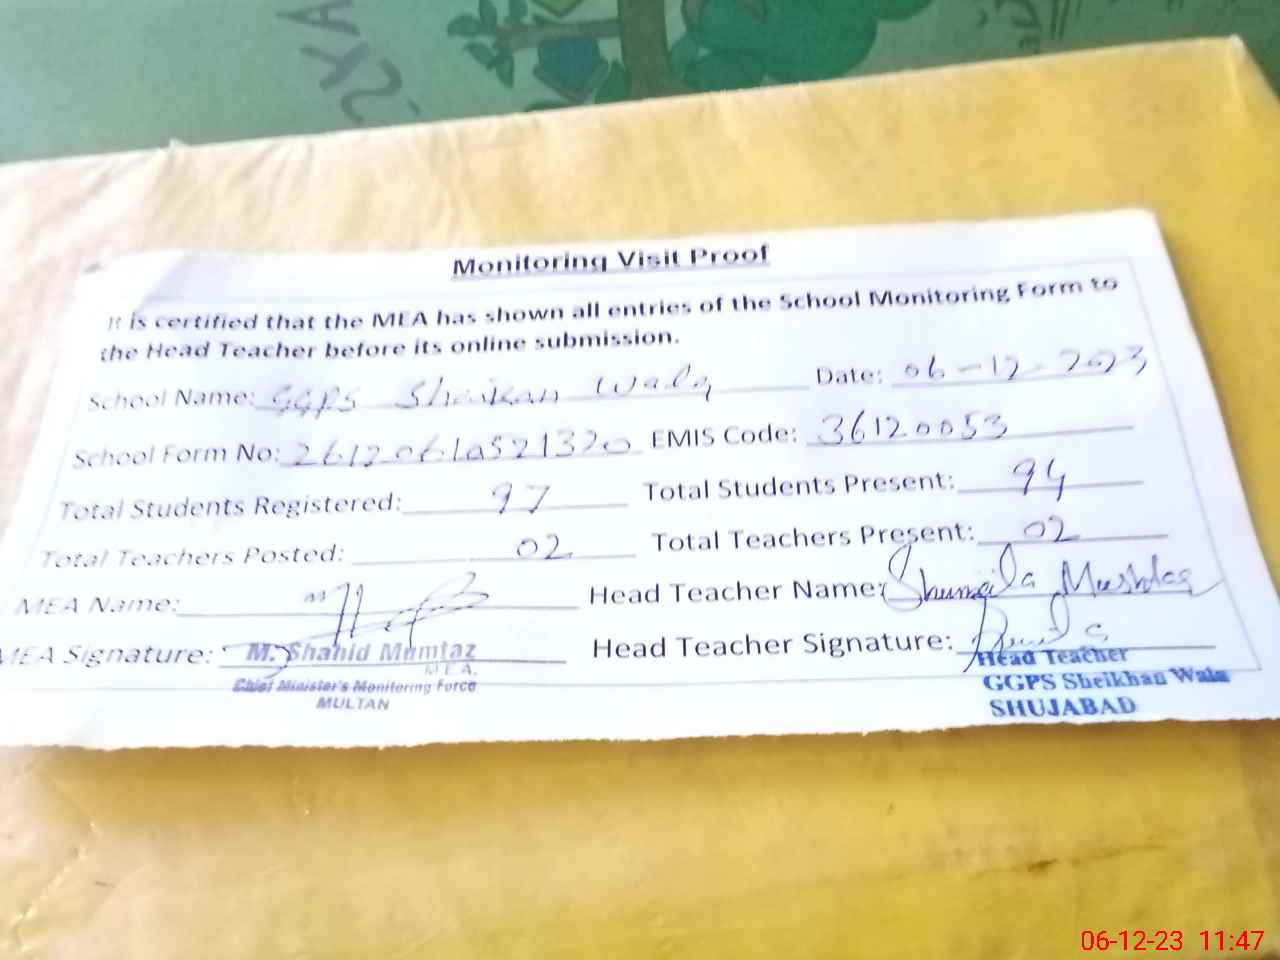 Monitoring Visit Proof
It is certified that the MEA has shown all entries of the School Monitoring Form to
the Head Teacher before its online submission.
School Name: GGPS Sheikan Wala Date: 06-12-2023
School Form No: EMIS Code: 36120053
Total Students Registered: 97 Total Students Present: 94
Total Teachers Posted: 02 Total Teachers Present: 02
MEA Name: Head Teacher Name: Shumaila Mushtaq
MEA Signature: Head Teacher Signature:
M. Shahid Mumtaz
M.E.A.
Chief Minister's Monitoring Force
MULTAN
Head Teacher
GGPS Sheikhan Wala
SHUJABAD
06-12-23 11:47